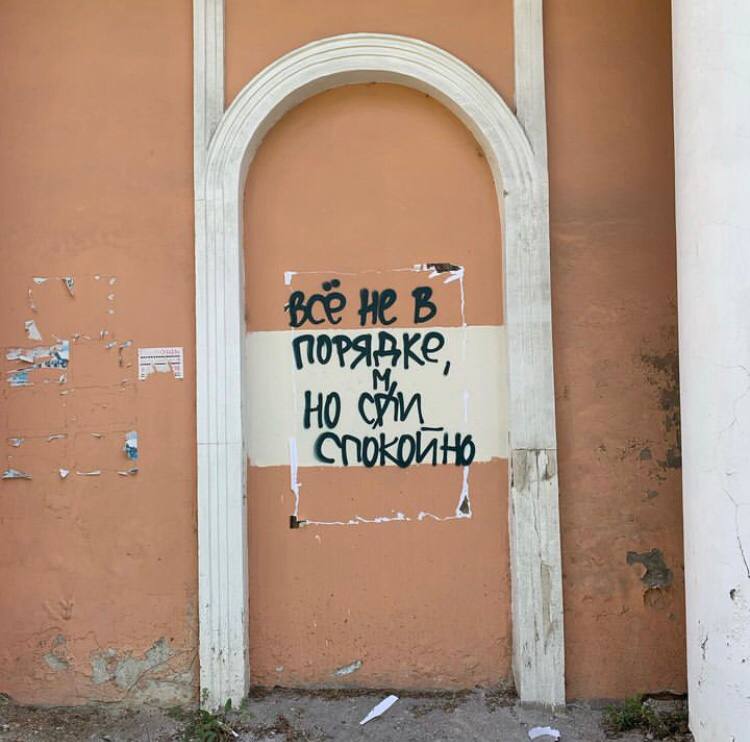 ВСЁ НЕ В
ПОРЯДКЕ,
М
НО СПИ
СПОКОЙНО